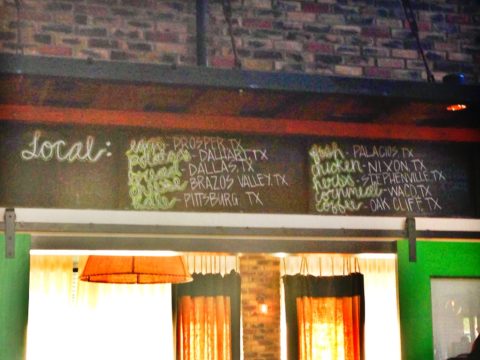 Local:
eggs - PROSPER, TX
potatoes - DALHART, TX
bread - DALLAS, TX
cheese - BRAZOS VALLEY, TX
kale - PITTSBURG, TX
fish - PALACIOS, TX
chicken - NIXON, TX
herbs - STEPHENVILLE, TX
cornmeal - WACO, TX
coffee - OAK CLIFF, TX